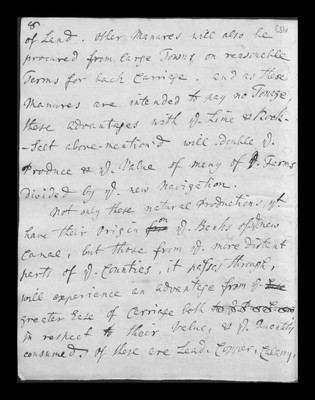 8
of Land. Other Manures will also be
procured from large Towns on reasonable
Terms for back Carriage. and as these
Manures are intended to pay no Tonage,
these advantages with ye. Lime & Rock
-Salt above-mention'd will double ye.
Produce & ye. Value of many of ye. Farms
divided by ye. new Navigation.
Not only these natural Productions, yt
have their Origin on ye. Banks of ye new
Canal, but those from ye. more distant
parts of ye. Counties, it passes through,
will experience an advantage from ye.
greater Ease of Carriage both
in respect to their Value, & ye. Quantity
consumed. Of these are Lead, Copper, Calamy,